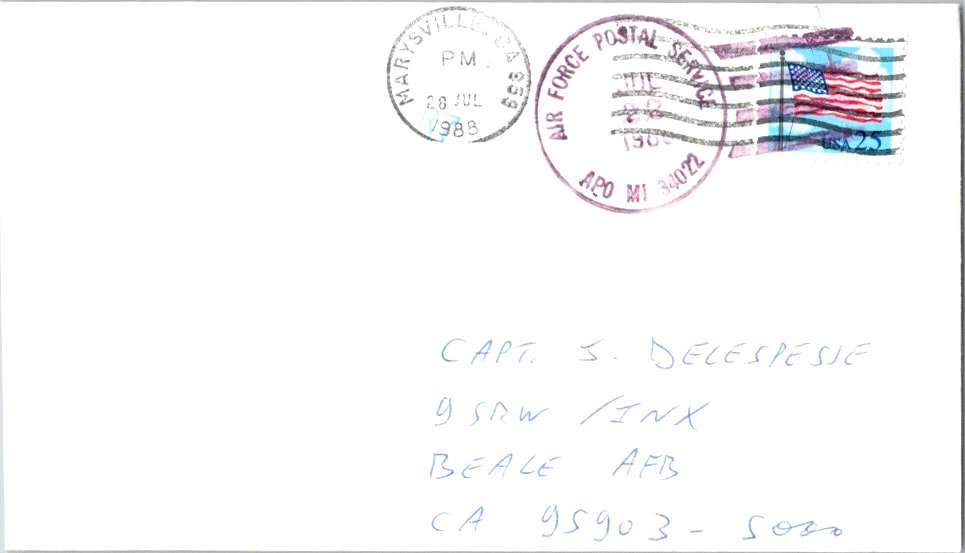 MARYSVILLE, CA 959
PM
28 JUL
1988
AIR FORCE POSTAL SERVICE
JUL
198
APO MI 34022
USA 25
CAPT. J. DELESPESSE
9 SRW / INX
BEALE AFB
CA 95903 - 5000